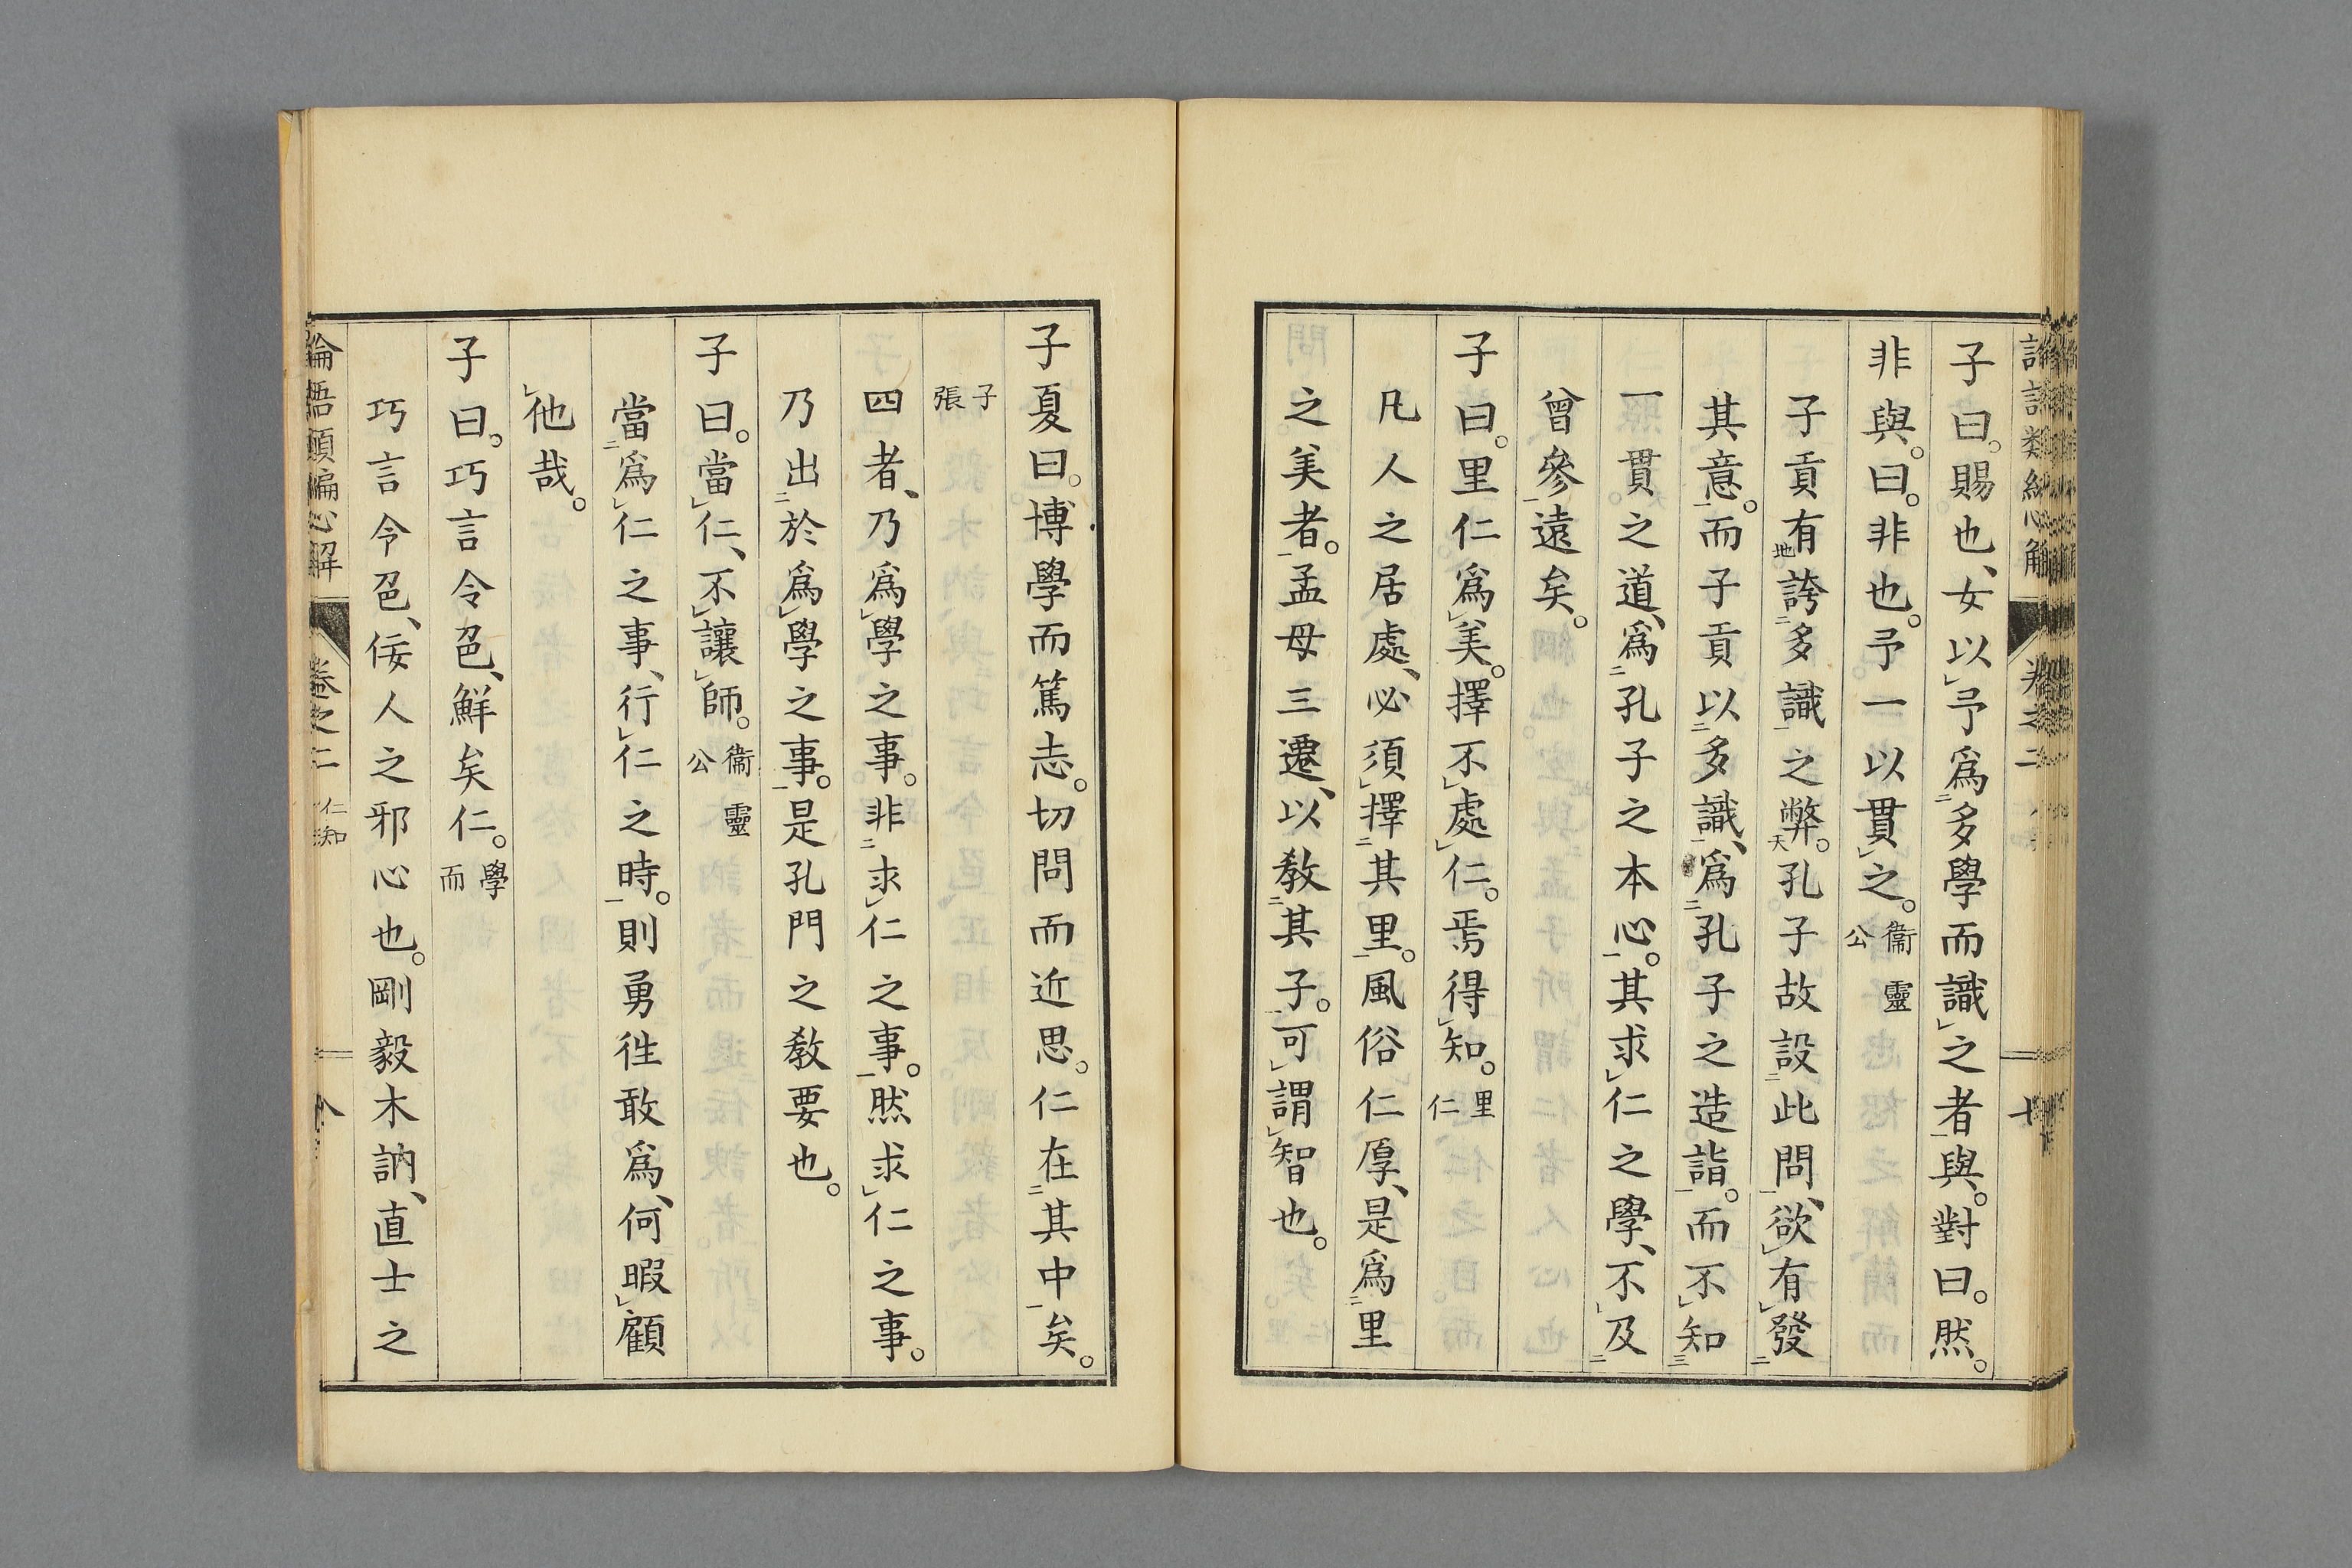 子曰。賜也、女以予爲多學而識之者與。對曰。然。
非與。曰。非也。予一以貫之。衞靈公
子貢有誇多識之弊。孔子故設此問、欲有發
其意。而子貢以多識、爲孔子之造詣。而不知
一貫之道、爲孔子之本心。其求仁之學、不及
曾參遠矣。
子曰。里仁爲美。擇不處仁。焉得知。里仁
凡人之居處、必須擇其里。風俗仁厚、是爲里
之美者。孟母三遷、以敎其子。可謂智也。
子夏曰。博學而篤志。切問而近思。仁在其中矣。
子張
四者、乃爲學之事。非求仁之事。然求仁之事。
乃出於爲學之事。是孔門之敎要也。
子曰。當仁、不讓師。衞靈公
當爲仁之事、行仁之時。則勇徃敢爲、何暇顧
他哉。
子曰。巧言令色、鮮矣仁。學而
巧言令色、佞人之邪心也。剛毅木訥、直士之
論語類編心解 卷之二 仁知